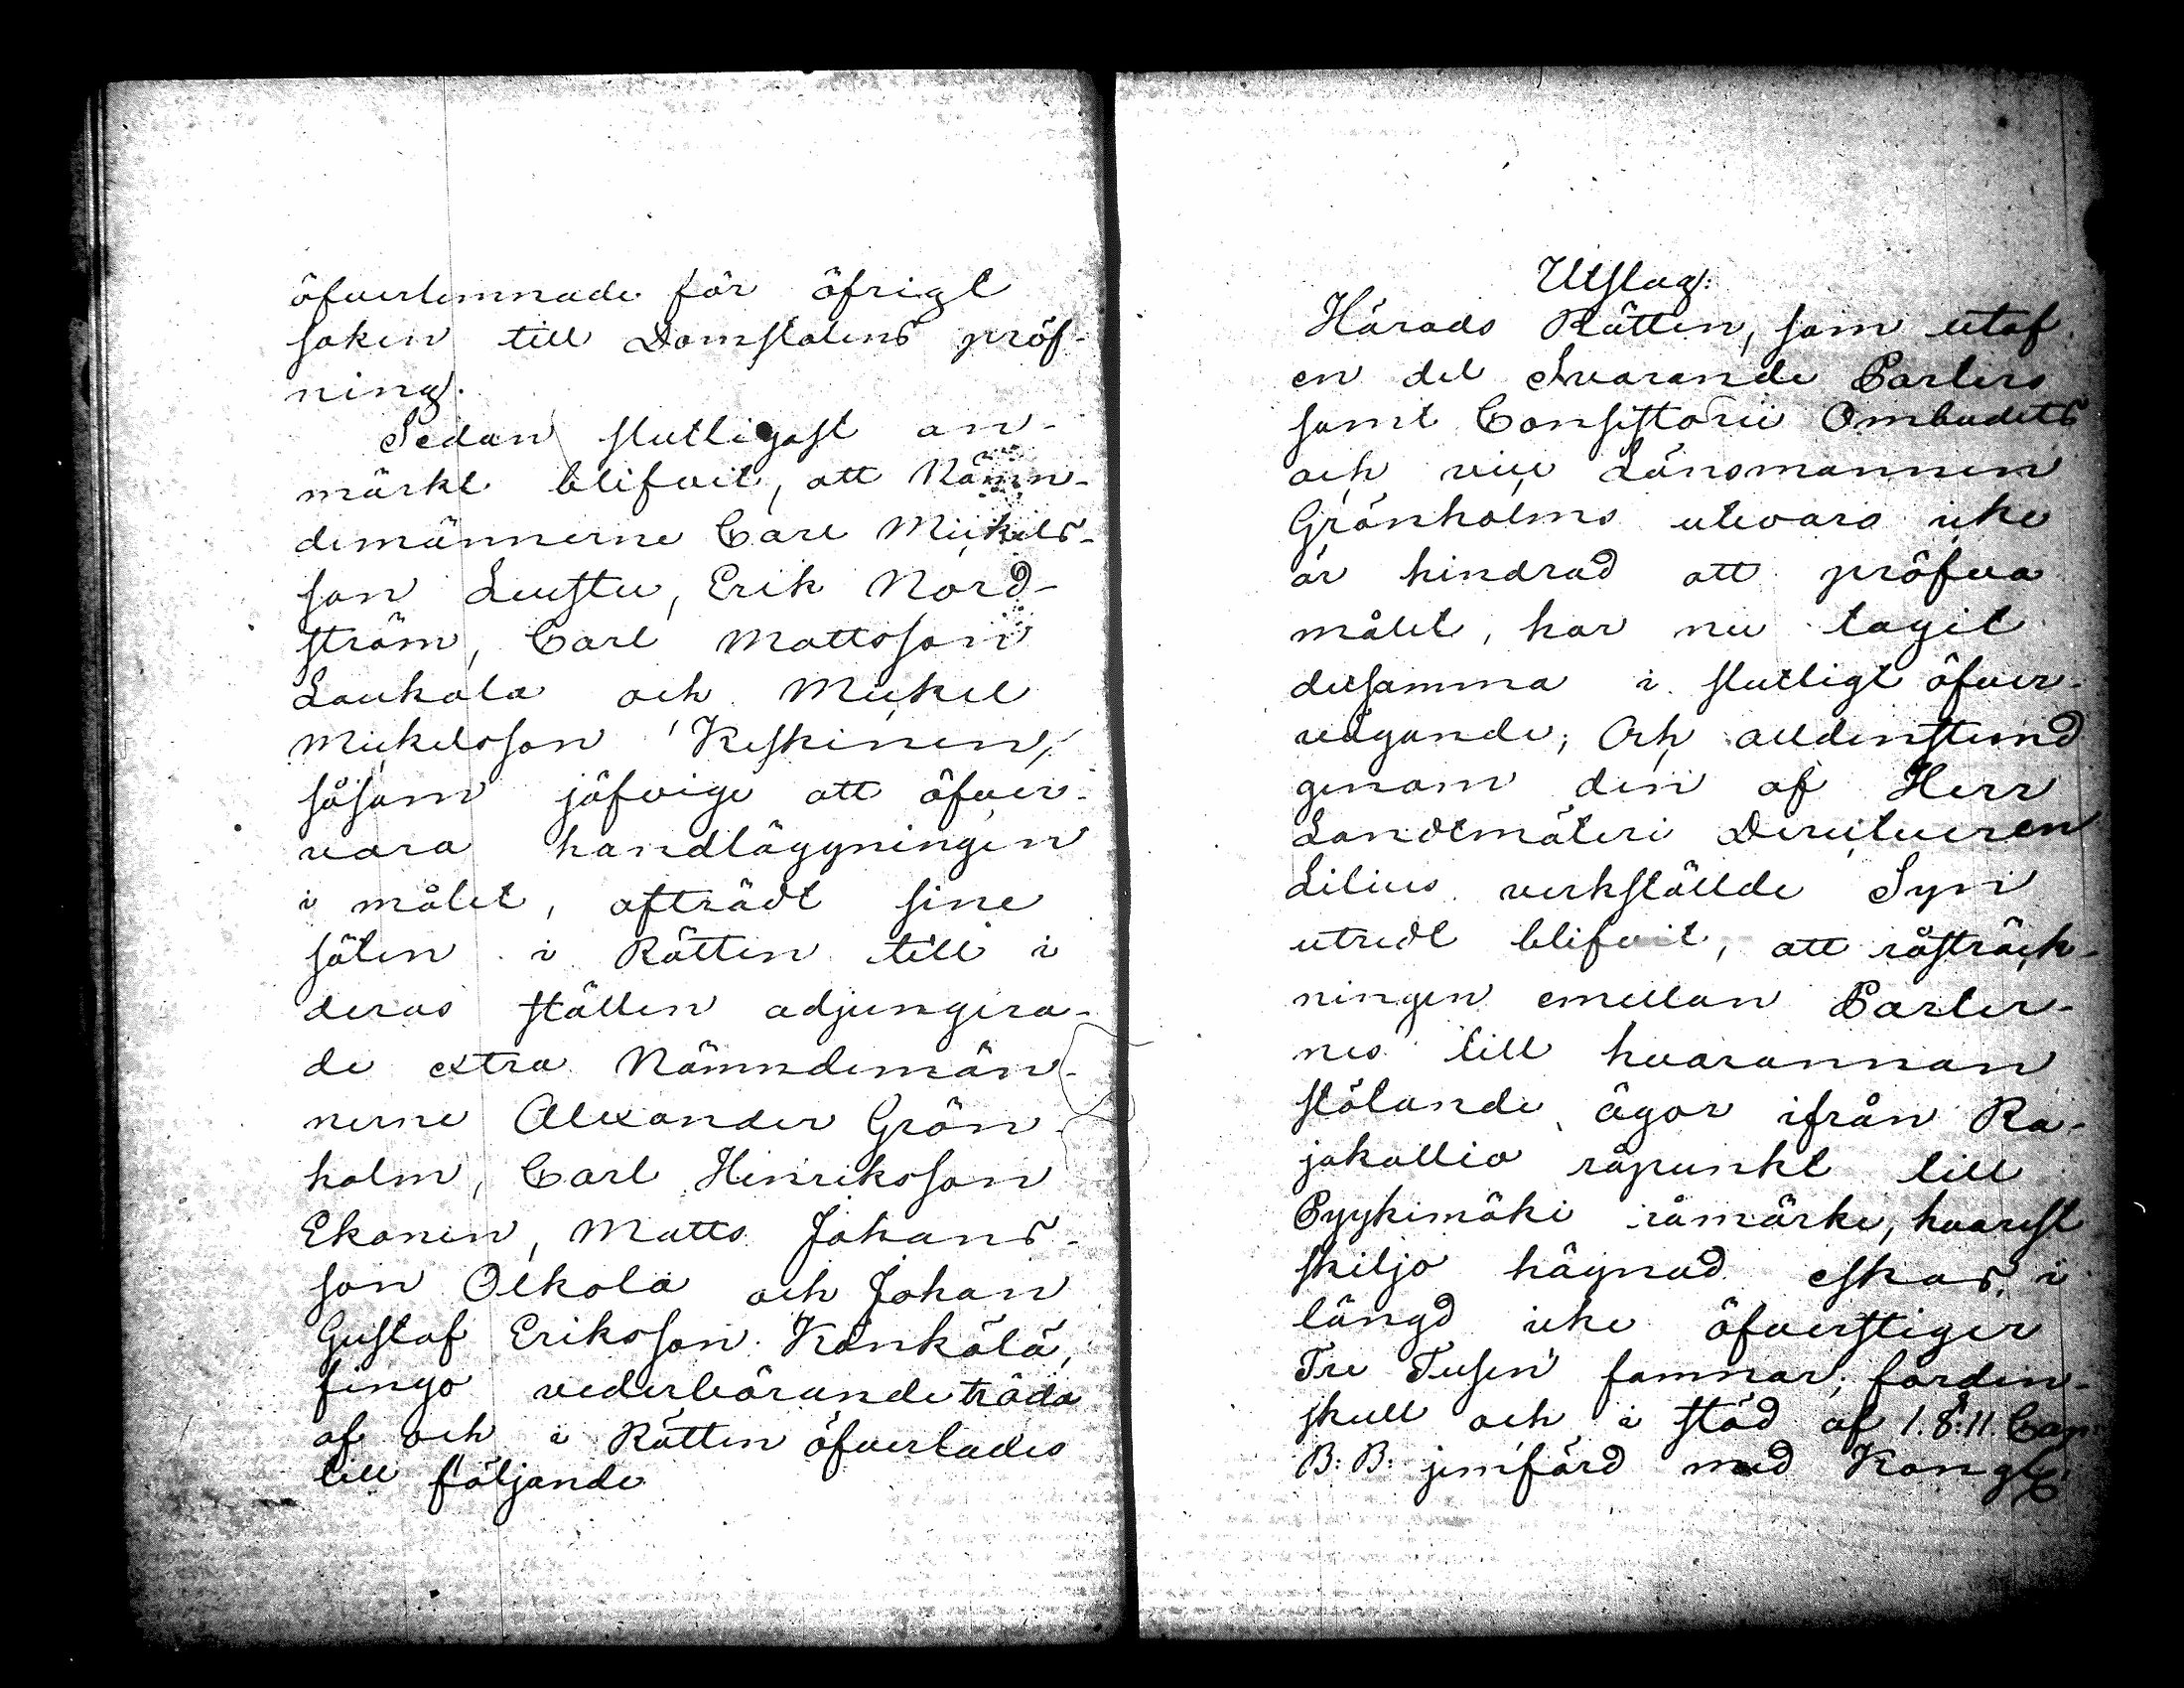 öfverlemnade för öfrigt
saken till Domstolens pröf-
ning.
Sedan slutligast an-
märkt blifvit, att Nämn-
demännerne Carl Mickels-
son Luustu, Erik Nord-
ström, Carl Mattsson
Laukola och Mickel
Mickelsson Keskinen,
såsom jäfvige att öfver-
vara handläggningen
i målet, afträdt sine
säten i Rätten till i
deras ställen adjungera-
de extra Nämndemän-
nerne Alexander Grön-
holm, Carl Hinriksson
Ekonen, Matts Johans-
son Olkola och Johan
Gustaf Eriksson Könkölä,
fingo vederbörande träda
af och i Rätten öfverlades
till följande
Utslag:
Härads Rätten, som utaf
en del Svarande Parters
samt Consistorii Ombudets
och vice Länsmannen
Grönholms utevaro icke
är hindrad att pröfva
målet, har nu tagit
detsamma i slutligt öfver-
vägande; Och alldenstund
genom den af Herr
Landtmäteri Direkteuren
Lilius verkställde Syn
utredt blifvit, att råsträck-
ningen emellan Parter-
nes till hvarannan
stötande ägor ifrån Ra-
jakallio råpunkt till
Pyykimäki råmärke, hvarest
skiljo hägnad eskas, i
längd icke öfverstiger
Tre Tusen famnar; fordin-
skull och i stöd af 1. §: 11. Cap:
B: B: jemförd med Kongl: